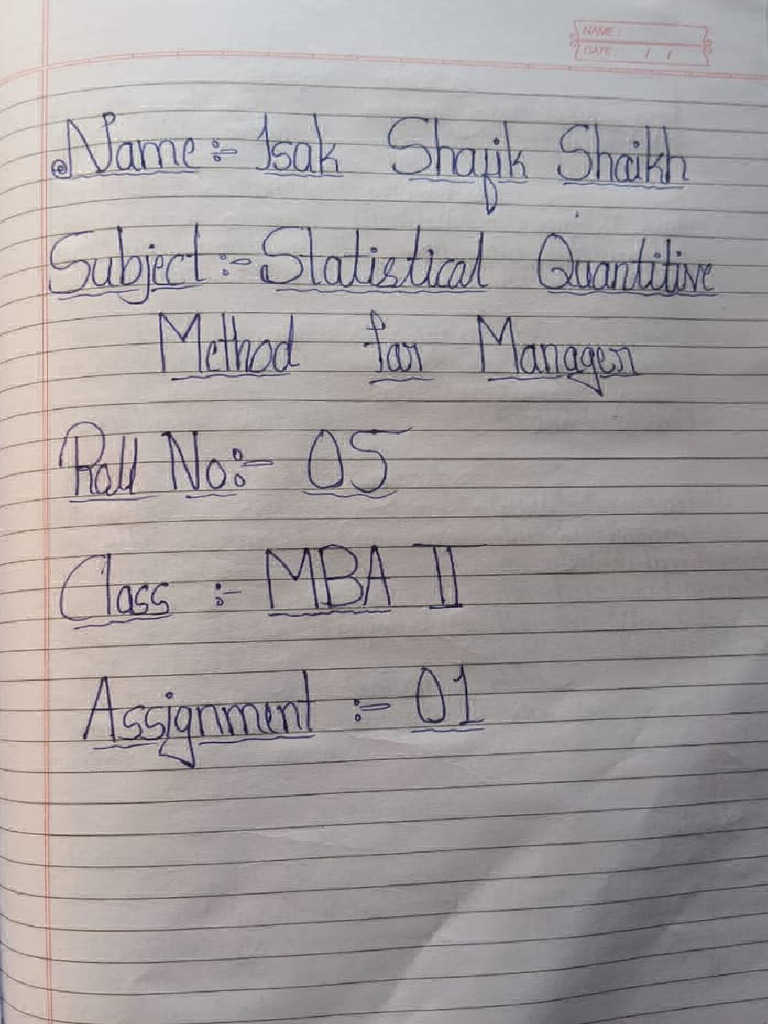 NAME:
DATE: / /
Name:- Isak Shafik Shaikh
Subject:- Statistical Quantitive
Method for Manager
Roll No:- 05
Class :- MBA II
Assignment :- 01